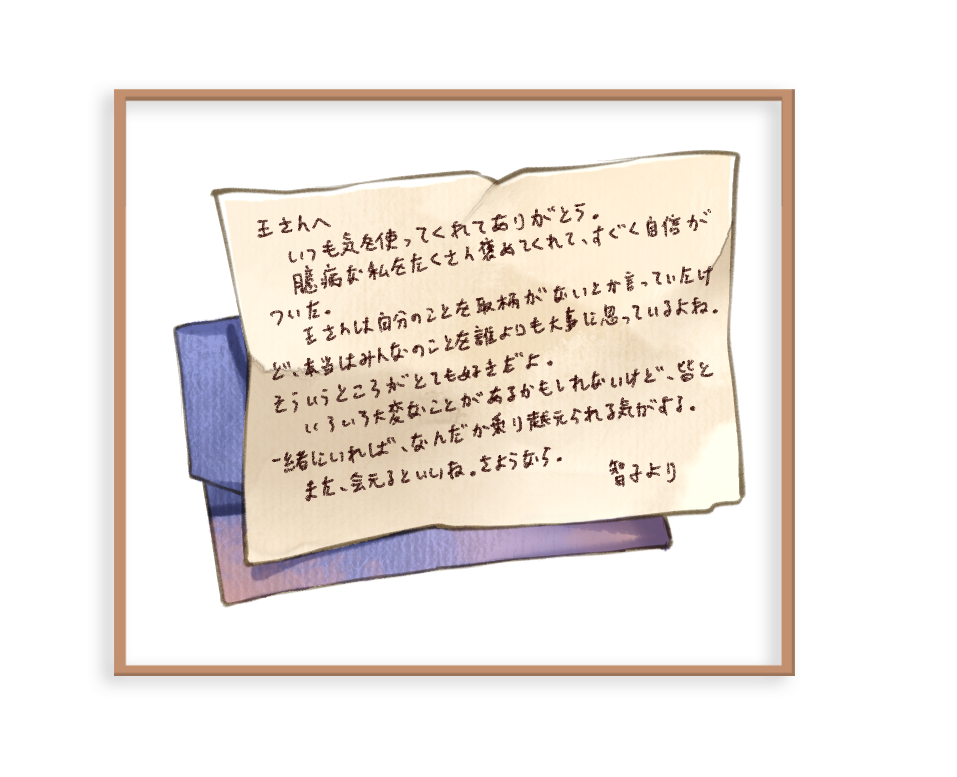 王さんへ
いつも気を使ってくれてありがとう。
臆病な私をたくさん褒めてくれて、すぐく自信が
ついた。
王さんは自分のことを取柄がないとか言っていたけ
ど、本当はみんなのことを誰よりも大事に思っているよね。
そういうところがとても好きだよ。
いろいろ大変なことがあるかもしれないけど、皆と
一緒にいれば、なんだか乗り越えられる気がする。
また、会えるといいね。さようなら。
智子より